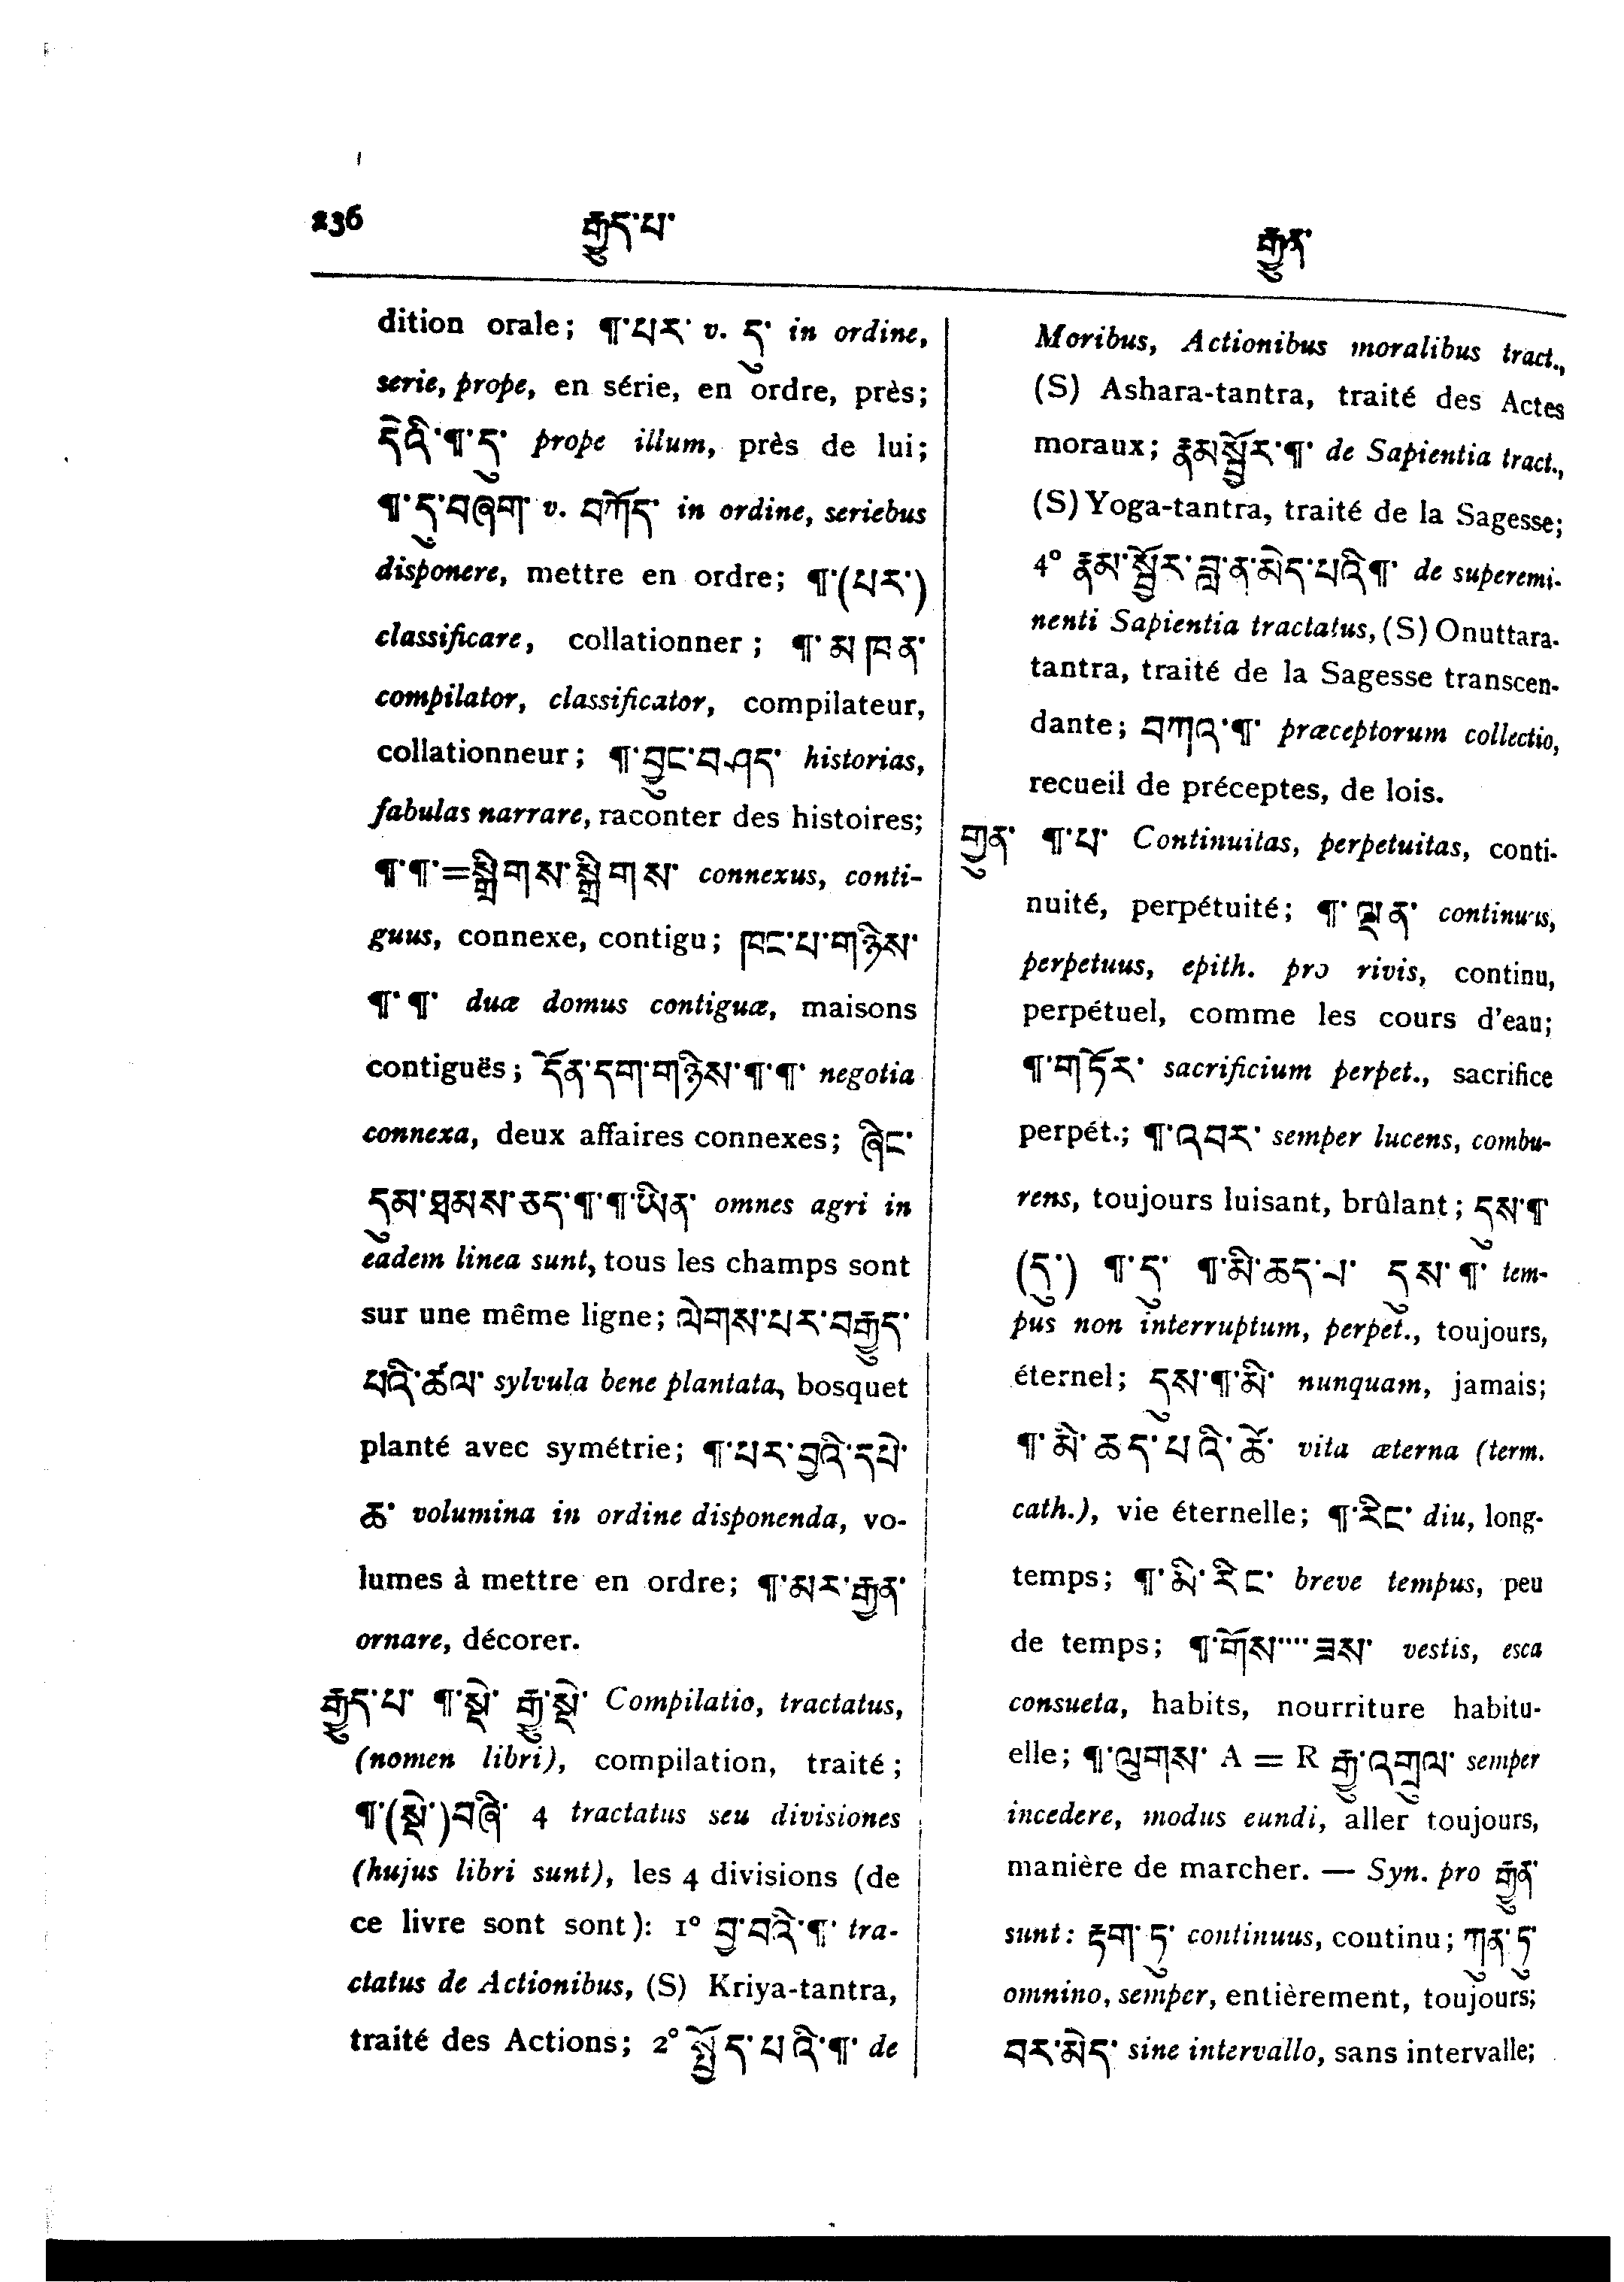 236 རྒྱུད་པ་ རྒྱུན་
dition orale; ¶་པར་ v. དུ་ in ordine,
serie, prope, en série, en ordre, près;
དེའི་¶་དུ་ prope illum, près de lui;
¶་དུ་བཞག་ v. བཀོད་ in ordine, seriebus
disponere, mettre en ordre; ¶་(པར་)
classificare, collationner; ¶་མཁན་
compilator, classificator, compilateur,
collationneur; ¶་བྱུང་བཤད་ historias,
fabulas narrare, raconter des histoires;
¶་¶་=སྒྲིགས་སྒྲིགས་ connexus, conti-
guus, connexe, contigu; ཁང་པ་གཉིས་
¶་¶་ duæ domus contiguæ, maisons
contiguës; དོན་དག་གཉིས་¶་¶་ negotia
connexa, deux affaires connexes; ཞིང་
དུམ་ཐམས་ཅད་¶་¶་ཡིན་ omnes agri in
eadem linea sunt, tous les champs sont
sur une même ligne; ལེགས་པར་བརྒྱུད་
པའི་ཚལ་ sylvula bene plantata, bosquet
planté avec symétrie; ¶་པར་བྱའི་དཔེ་
ཆ་ volumina in ordine disponenda, vo-
lumes à mettre en ordre; ¶་མར་རྒྱན་
ornare, décorer.
རྒྱུད་པ་ ¶་སྡེ་ རྒྱུ་སྡེ་ Compilatio, tractatus,
(nomen libri), compilation, traité;
¶་(སྡེ་)བཞི་ 4 tractatus seu divisiones
(hujus libri sunt), les 4 divisions (de
ce livre sont sont): 1° བྱ་བའི་¶་ tra-
ctatus de Actionibus, (S) Kriya-tantra,
traité des Actions; 2° སྤྱོད་པའི་¶་ de
Moribus, Actionibus moralibus tract.,
(S) Ashara-tantra, traité des Actes
moraux; རྣམ་སྦྱོར་¶་ de Sapientia tract.,
(S) Yoga-tantra, traité de la Sagesse;
4° རྣམ་སྦྱོར་བླ་ན་མེད་པའི་¶་ de superemi-
nenti Sapientia tractatus, (S) Onuttara-
tantra, traité de la Sagesse transcen-
dante; བཀའ་¶་ præceptorum collectio,
recueil de préceptes, de lois.
གྱུན་ ¶་པ་ Continuitas, perpetuitas, conti-
nuité, perpétuité; ¶་ལྡན་ continuus,
perpetuus, epith. pro rivis, continu,
perpétuel, comme les cours d'eau;
¶་གཏོར་ sacrificium perpet., sacrifice
perpét.; ¶་འབར་ semper lucens, combu-
rens, toujours luisant, brûlant; དུས་¶་
(དུ་) ¶་དུ་ ¶་མི་ཆད་པ་ དུས་¶་ tem-
pus non interruptum, perpet., toujours,
éternel; དུས་¶་མི་ nunquam, jamais;
¶་མི་ཆད་པའི་ཚེ་ vita æterna (term.
cath.), vie éternelle; ¶་རིང་ diu, long-
temps; ¶་མི་རིང་ breve tempus, peu
de temps; ¶་གོས་...ཟས་ vestis, esca
consueta, habits, nourriture habitu-
elle; ¶་ལུགས་ A = R རྒྱུ་འགྲུལ་ semper
incedere, modus eundi, aller toujours,
manière de marcher. — Syn. pro རྒྱུན་
sunt: རྟག་ཏུ་ continuus, continu; ཀུན་ཏུ་
omnino, semper, entièrement, toujours;
བར་མེད་ sine intervallo, sans intervalle;